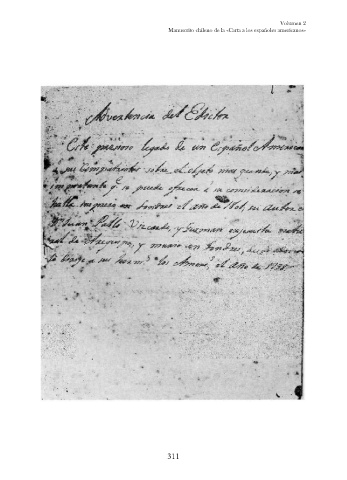 Volumen 2
Manuscrito chileno de la «Carta a los españoles americanos»
Advertencia del Editor
Este precioso legado de un Español Americano
a sus Compatriotas sobre el objeto mas grande, y mas
importante q.e se puede ofrecer a su consideracion se
halla impreso en Londres el año de 1801, su autor
Juan Pablo Viscardo, y Gusman exjesuita
de Arequipa, y murio en Londres,
a sus herm.s los Amer.s el año de 1798
311